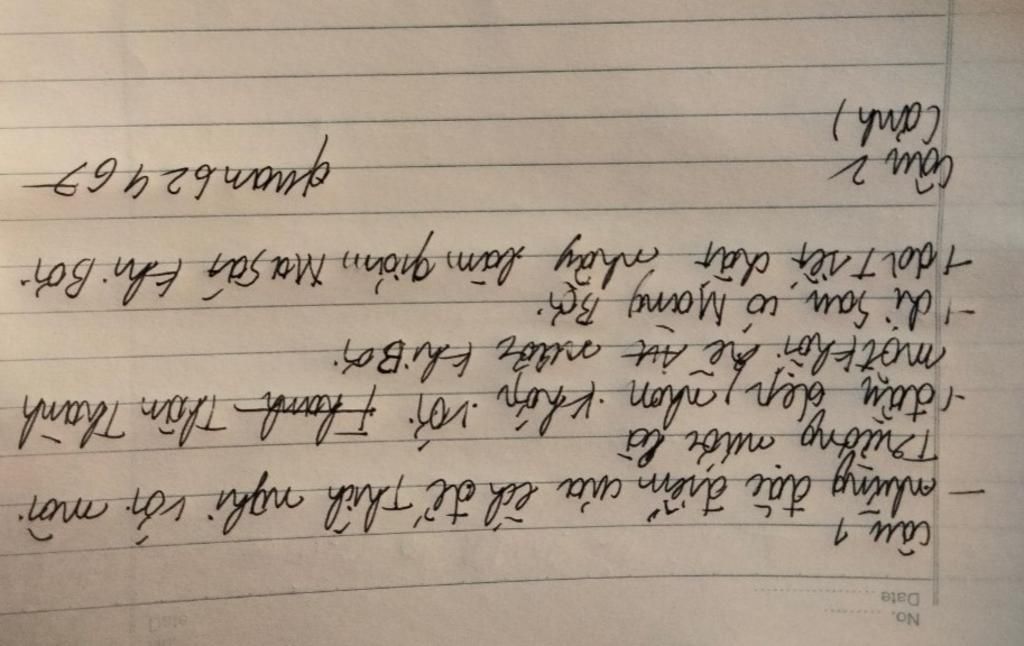 No.
Date
câu 1
- những đặc điểm của ếch để thích nghi với môi
trường nước là
+ đầu dẹp, nhọn khớp với thân thành
một khối rẽ nước khi Bơi.
+ di sau có Màng Bơi.
+ da Tiết chất nhày làm giảm, Ma Sát khi Bơi.
câu 2
cành)
quan62467
Date